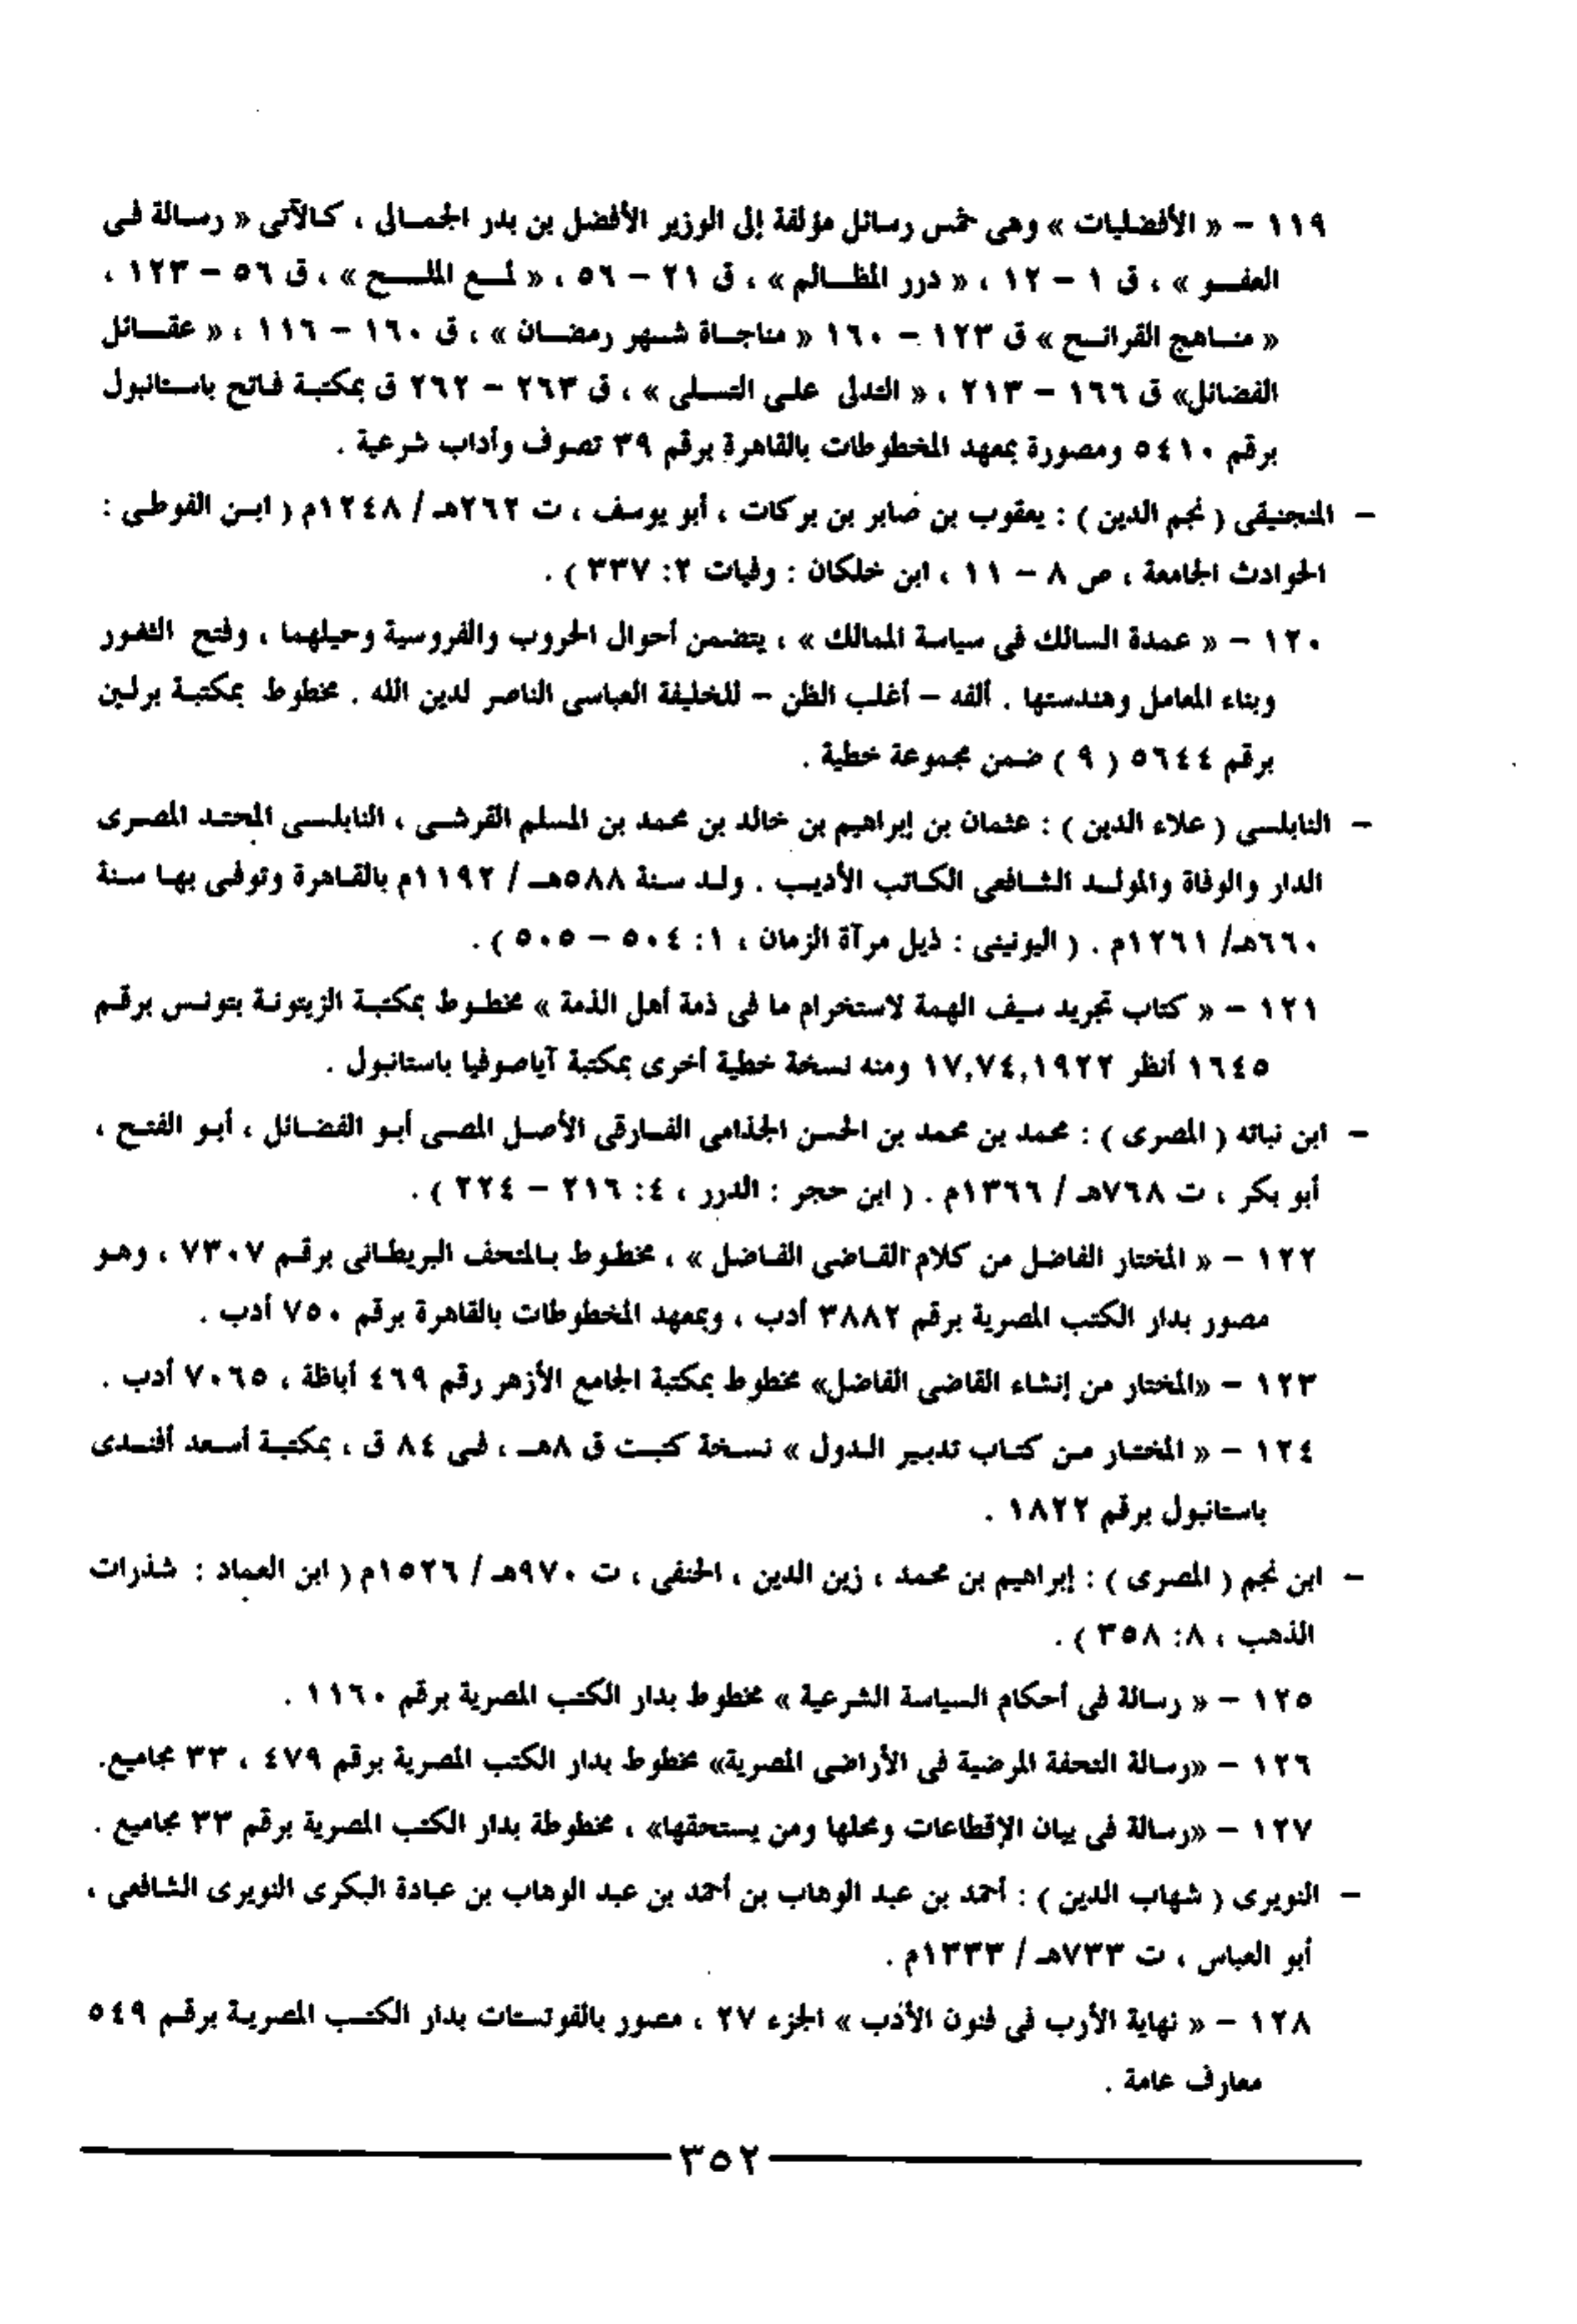 ١١٩ – « الأفضليات » وهى خمس رسائل مؤلفة إلى الوزير الأفضل بن بدر الجمالى ، كالآتى « رسالة فى
العفو » ، ق ١ – ١٢ ، « درر المظالم » ، ق ٢١ – ٥٦ ، « لمع الملح » ، ق ٥٦ – ١٢٣ ،
« مناهج القرائح » ق ١٢٣ – ١٦٠ « مناجاة شهر رمضان » ، ق ١٦٠ – ١١٦ ، « عقائل
الفضائل» ق ١٦٦ – ٢١٣ ، « التدلى على التسلى » ، ق ٢٦٣ – ٢٦٢ ق بمكتبة فاتح باستانبول
برقم ٥٤١٠ ومصورة بمعهد المخطوطات بالقاهرة برقم ٣٩ تصوف وأداب شرعية .
– المنجنيقى ( نجم الدين ) : يعقوب بن صابر بن بركات ، أبو يوسف ، ت ٢٦٢هـ / ١٢٤٨م ( ابن الفوطى :
الحوادث الجامعة ، ص ٨ – ١١ ، ابن خلكان : وفيات ٢: ٣٣٧ ) .
١٢٠ – « عمدة السالك فى سياسة الممالك » ، يتضمن أحوال الحروب والفروسية وحيلهما ، وفتح الثغور
وبناء المعامل وهندستها . ألفه – أغلب الظن – للخليفة العباسى الناصر لدين الله . مخطوط بمكتبة برلين
برقم ٥٦٤٤ ( ٩ ) ضمن مجموعة خطية .
– النابلسى ( علاء الدين ) : عثمان بن إبراهيم بن خالد بن محمد بن المسلم القرشى ، النابلسى المحتد المصرى
الدار والوفاة والمولد الشافعى الكاتب الأديب . ولد سنة ٥٨٨هـ / ١١٩٢م بالقاهرة وتوفى بها سنة
٦٦٠هـ/ ١٢٦١م . ( اليونينى : ذيل مرآة الزمان ، ١: ٥٠٤ – ٥٠٥ ) .
١٢١ – « كتاب تجريد سيف الهمة لاستخرام ما فى ذمة أهل الذمة » مخطوط بمكتبة الزيتونة بتونس برقم
١٦٤٥ أنظر ١٧,٧٤,١٩٢٢ ومنه نسخة خطية أخرى بمكتبة آياصوفيا باستانبول .
– ابن نباته ( المصرى ) : محمد بن محمد بن الحسن الجذامى الفارقى الأصل المصى أبو الفضائل ، أبو الفتح ،
أبو بكر ، ت ٧٦٨هـ / ١٣٦٦م . ( ابن حجر : الدرر ، ٤: ٢١٦ – ٢٢٤ ) .
١٢٢ – « المختار الفاضل من كلام القاضى الفاضل » ، مخطوط بالمتحف البريطانى برقم ٧٣٠٧ ، وهو
مصور بدار الكتب المصرية برقم ٣٨٨٢ أدب ، وبمعهد المخطوطات بالقاهرة برقم ٧٥٠ أدب .
١٢٣ – «المختار من إنشاء القاضى الفاضل» مخطوط بمكتبة الجامع الأزهر رقم ٤٦٩ أباظة ، ٧٠٦٥ أدب .
١٢٤ – « المختار من كتاب تدبير الدول » نسخة كتبت ق ٨هـ ، فى ٨٤ ق ، بمكتبة أسعد أفندى
باستانبول برقم ١٨٢٢ .
– ابن نجم ( المصرى ) : إبراهيم بن محمد ، زين الدين ، الحنفى ، ت ٩٧٠هـ / ١٥٢٦م ( ابن العماد : شذرات
الذهب ، ٨: ٣٥٨ ) .
١٢٥ – « رسالة فى أحكام السياسة الشرعية » مخطوط بدار الكتب المصرية برقم ١١٦٠ .
١٢٦ – «رسالة التحفة المرضية فى الأراضى المصرية» مخطوط بدار الكتب المصرية برقم ٤٧٩ ، ٣٣ مجاميع.
١٢٧ – «رسالة فى بيان الإقطاعات ومحلها ومن يستحقها» ، مخطوطة بدار الكتب المصرية برقم ٣٣ مجاميع .
– النويرى ( شهاب الدين ) : أحمد بن عبد الوهاب بن أحمد بن عبد الوهاب بن عبادة البكرى النويرى الشافعى ،
أبو العباس ، ت ٧٣٣هـ / ١٣٣٣م .
١٢٨ – « نهاية الأرب فى فنون الأدب » الجزء ٢٧ ، مصور بالفوتستات بدار الكتب المصرية برقم ٥٤٩
معارف عامة .
٣٥٢